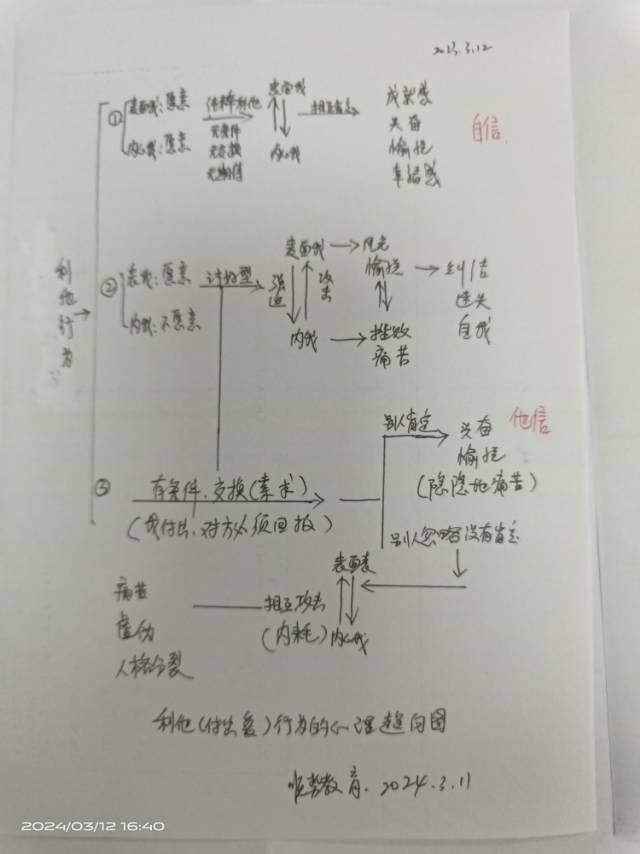 2023.3.12
① 表面我：愿意 纯粹利他 表面我 相互肯定 成就感
无条件 兴奋 自信
内心我：愿意 无交换 内心我 愉悦
无期待 幸福感
利他行为
② 表我：愿意 讨好型 强迫 表面我 攻击 愉悦 纠结
迷失
内我：不愿意 内我 挫败 自我
痛苦
别人肯定 兴奋 他信
愉悦
③ 有条件、交换(索求) (隐隐地痛苦)
(我付出、对方必须回报) 别人忽略没有肯定
痛苦 相互攻击
虚伪 (内耗) 内心我
人格分裂
利他(付出爱)行为的心理趋向图
教育. 2024.3.11
2024/03/12 16:40